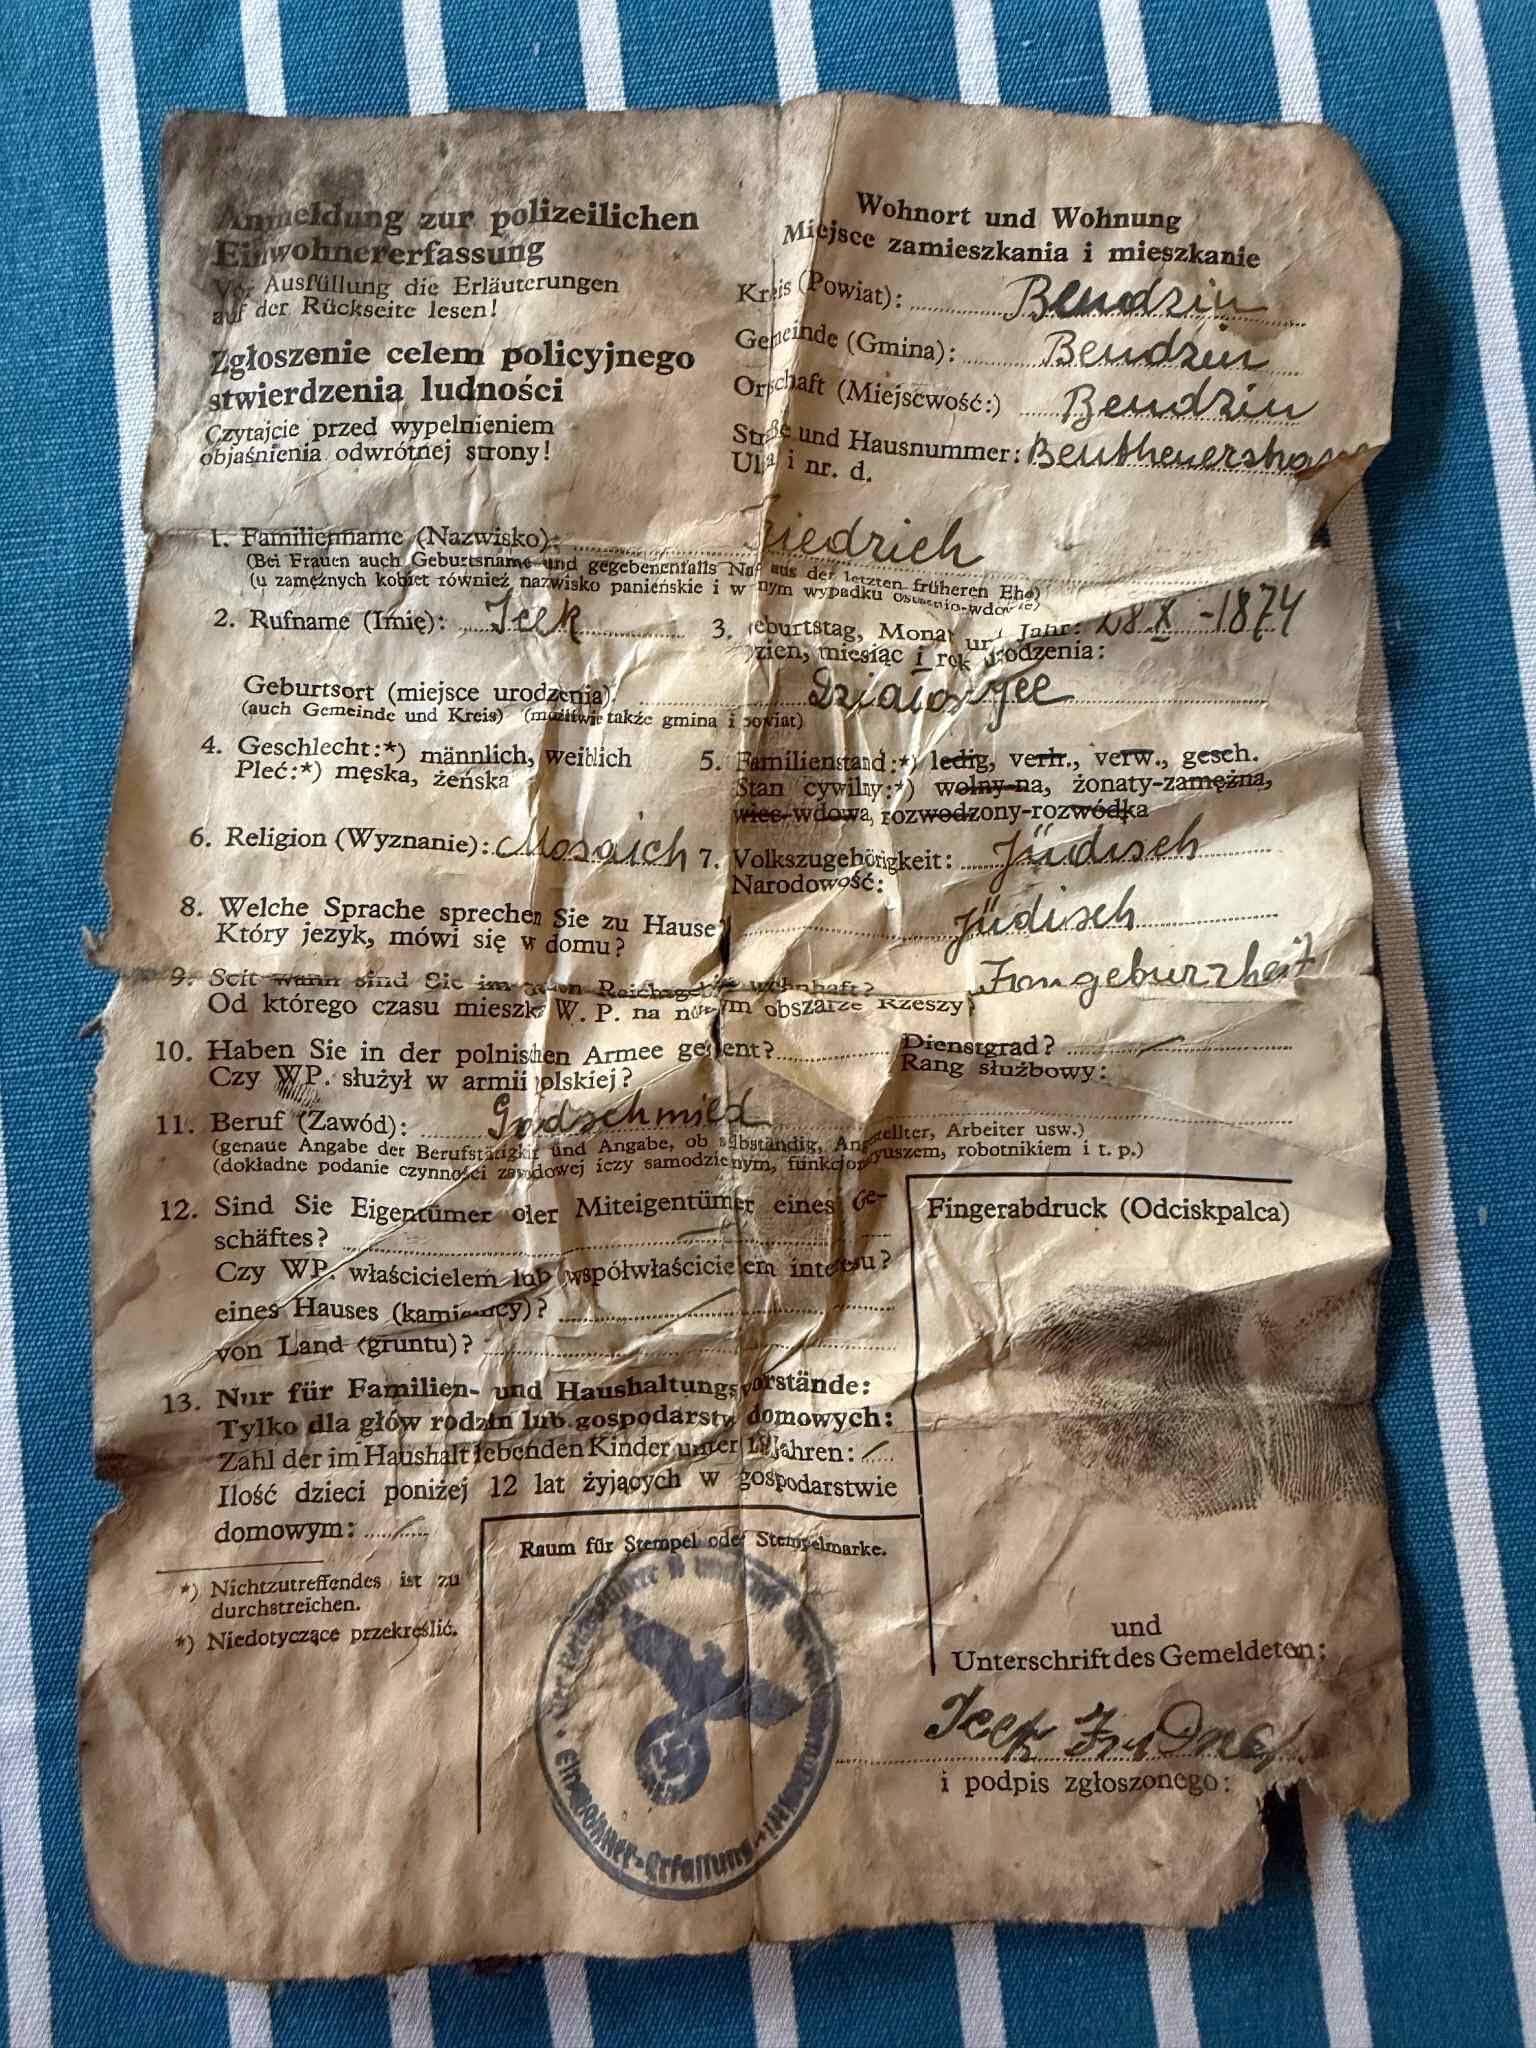 Anmeldung zur polizeilichen
Einwohnererfassung
Vor Ausfüllung die Erläuterungen
auf der Rückseite lesen!
Zgłoszenie celem policyjnego
stwierdzenia ludności
Czytajcie przed wypełnieniem
objaśnienia odwrótnej strony!
Wohnort und Wohnung
Miejsce zamieszkania i mieszkanie
Kreis (Powiat): Bendzin
Gemeinde (Gmina): Bendzin
Ortschaft (Miejscwość:) Bendzin
Straße und Hausnummer: Beutheuerstra
Ula i nr. d.
1. Familienname (Nazwisko): Friedrich
(Bei Frauen auch Geburtsname und gegebenenfalls Na aus der letzten früheren Ehe)
(u zamężnych kobiet również nazwisko panieńskie i w nym wypadku
2. Rufname (Imię): Icek
3. Geburtstag, Monat und Jahr: 28 X -1874
Dzien, miesiąc i rok urodzenia:
Geburtsort (miejsce urodzenia)
(auch Gemeinde und Kreis) (możliwie także gmina i powiat)
4. Geschlecht:*) männlich, weiblich
Pleć:*) męska, żeńska
5. Familienstand:*) ledig, verh., verw., gesch.
Stan cywilny:*) wolny-na, żonaty-zamężna,
wdowa, rozwodzony-rozwódka
6. Religion (Wyznanie): Mosaich
7. Volkszugehörigkeit: Jüdisch
Narodowość:
8. Welche Sprache sprechen Sie zu Hause? Jüdisch
Który jezyk, mówi się w domu?
9. Seit wann sind Sie im neuen Reichsgebiet wohnhaft? Fon geburzheit
Od którego czasu mieszka W. P. na nowym obszarze Rzeszy?
10. Haben Sie in der polnischen Armee gedient?
Czy WP. służył w armii polskiej?
Dienstgrad? —
Rang służbowy:
11. Beruf (Zawód): Goldschmied
(genaue Angabe der Berufstätigkeit und Angabe, ob selbständig, Angestellter, Arbeiter usw.)
(dokładne podanie czynności zawodowej iczy samodzielnym, funkcjonaryuszem, robotnikiem i t. p.)
12. Sind Sie Eigentümer oder Miteigentümer eines Ge-
schäftes? —
Czy WP. właścicielem lub współwłaścicielem interesu?
eines Hauses (kamienicy)? —
von Land (gruntu)?
13. Nur für Familien- und Haushaltungsvorstände:
Tylko dla głów rodzin lub gospodarstw domowych:
Zahl der im Haushalt lebenden Kinder unter 12 Jahren: —
Ilość dzieci poniżej 12 lat żyjących w gospodarstwie
domowym: —
*) Nichtzutreffendes ist zu
durchstreichen.
*) Niedotyczące przekreślić.
Raum für Stempel oder Stempelmarke.
Einwohner-Erfassung
Fingerabdruck (Odciskpalca)
und
Unterschrift des Gemeldeten:
Icek
i podpis zgłoszonego: